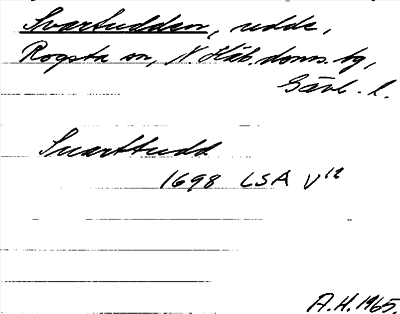 Svartudden, udde,
Rogsta sn, N. Häls. doms. bg,
Gävl. l.
Svarttudd
1698 LSA V12
A.H. 1965.